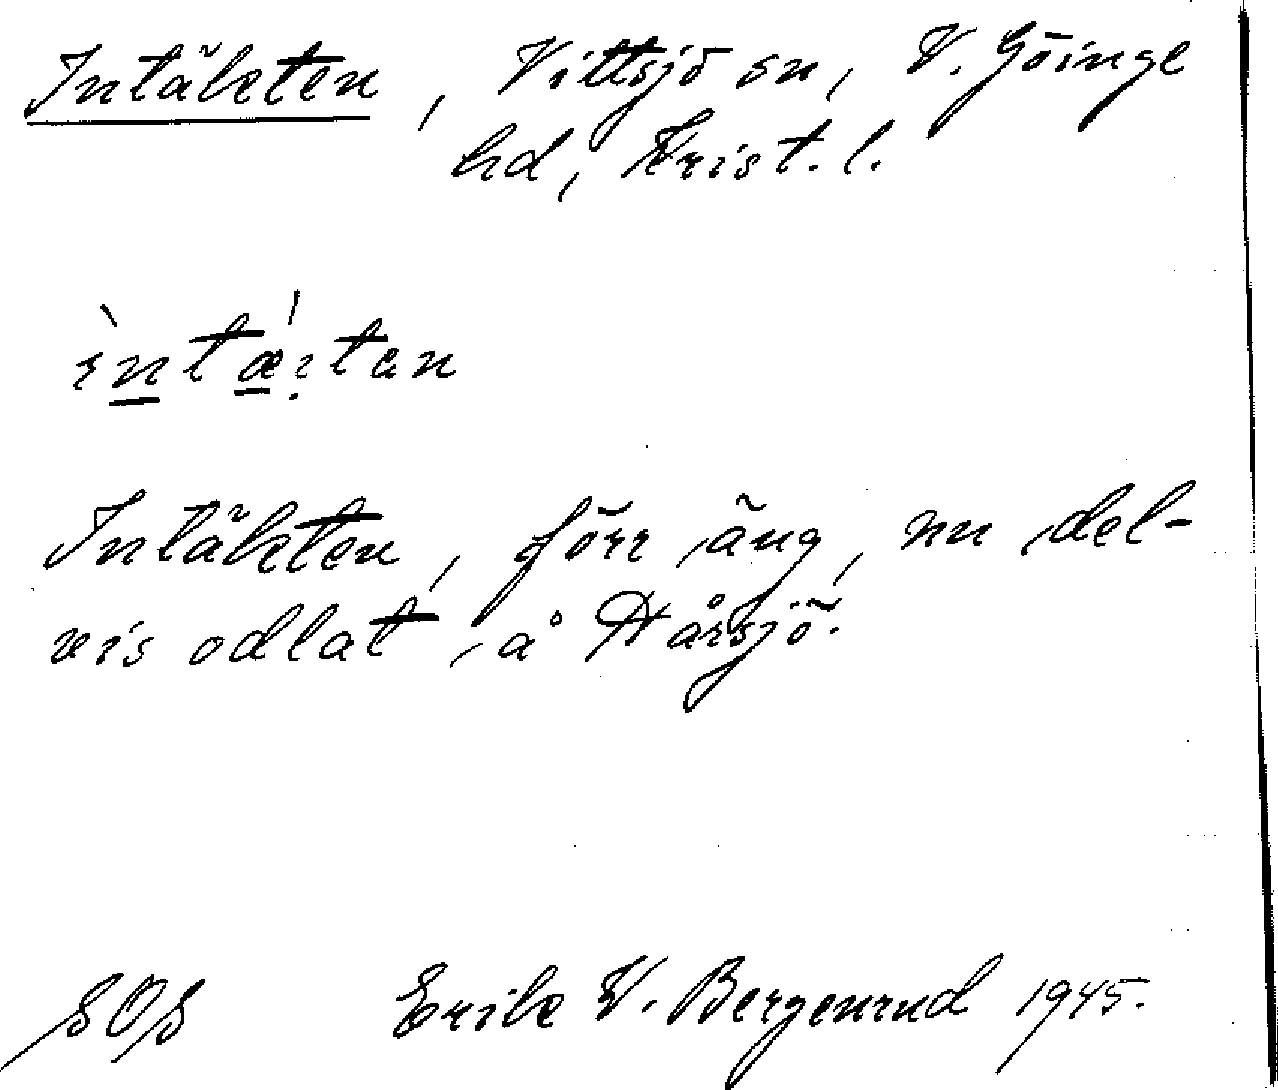 Intäkten, Vittsjö sn, V. Göinge
hd, Krist. l.
Intäkten, förr äng, nu del-
vis odlat, å Hårsjö.
SOS Erik W. Bergenrud 1945.